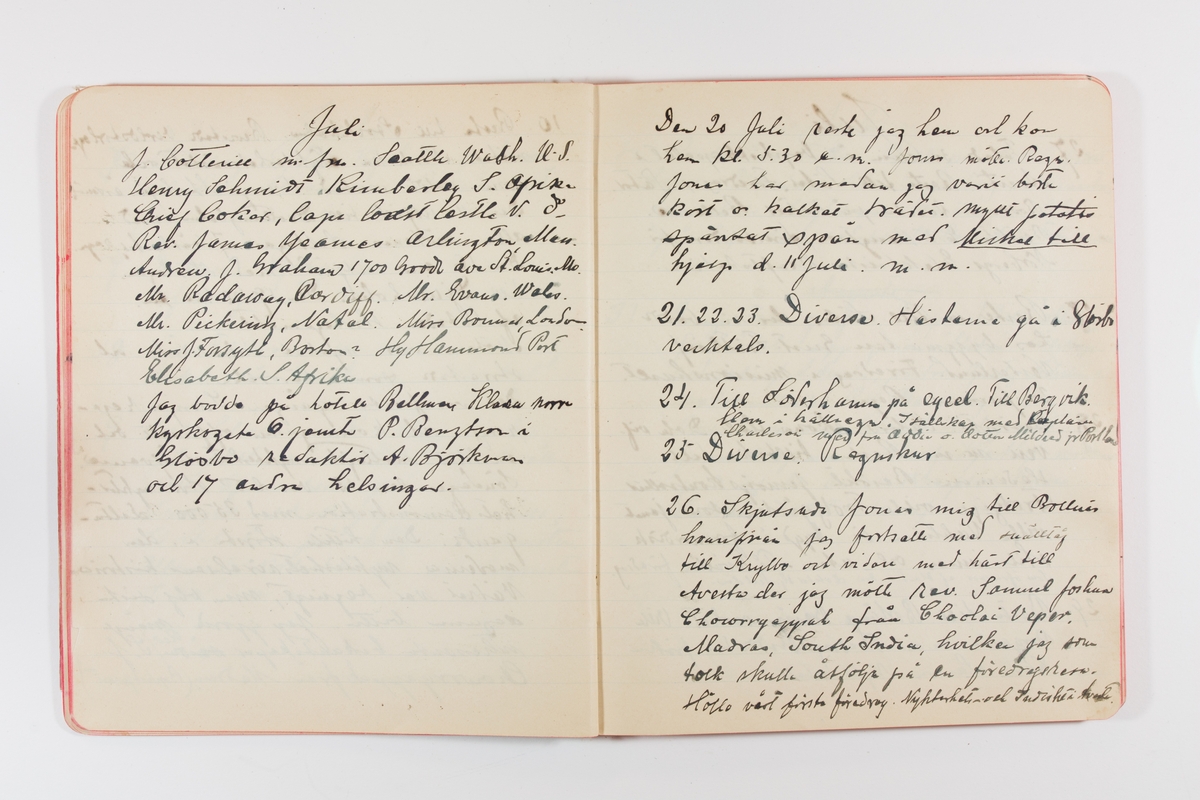 Juli
J. Cotterill m. fru. Seattle Wash. U.S.
Henry Schmidt Kimberley S. Afrika
Chief Coker, Cape Coast Castle V.
Rev. James Yeames Arlington Mass.
Andrew J. Graham 1700 Goode ave St. Louis. Mo.
Mr. Radaway, Cardiff. Mr. Evans. Wales.
Mr. Pickering, Natal. Miss London
Miss J Forsyth, Boston? Hy Hammond Port
Elisabeth. S. Afrika
Jag bodde på hotell Bellman Klara norra
kyrkogata 6 jemte P. Bengtson i
Glösbo redaktör A. Björkman
och 17 andra helsingar.
Den 20 Juli reste jag hem och kom
hem kl. 5.30 e.m. Jonas mötte. Regn.
Jonas har medan jag varit borte
kört o. kalkat trädet. Myllt potatis
späntat spån med Mickel till
hjelp d. 11 Juli. m. m.
21. 22. 23. Diverse. Hästarna gå i Glösbo
vecktals.
24. Till Söderhamn på cycel. Till Bergvik.
Hem i hällregn. I sällskap med Captain
Charleson o. dotter Mildred fr Portland
25 Diverse. Regnskur
26. Skjutsade Jonas mig till Bollnäs
hvarifrån jag fortsatte med snälltåg
till Krylbo och vidare med häst till
Avesta der jag mötte Rev. Samuel Joshua
Chowryappah från Choolai Veper.
Madras, South India, hvilken jag som
tolk skulle åtfölja på en föredragsresa.
Höllo vårt första föredrag. Nykterhets- och Indiskt i Avesta.